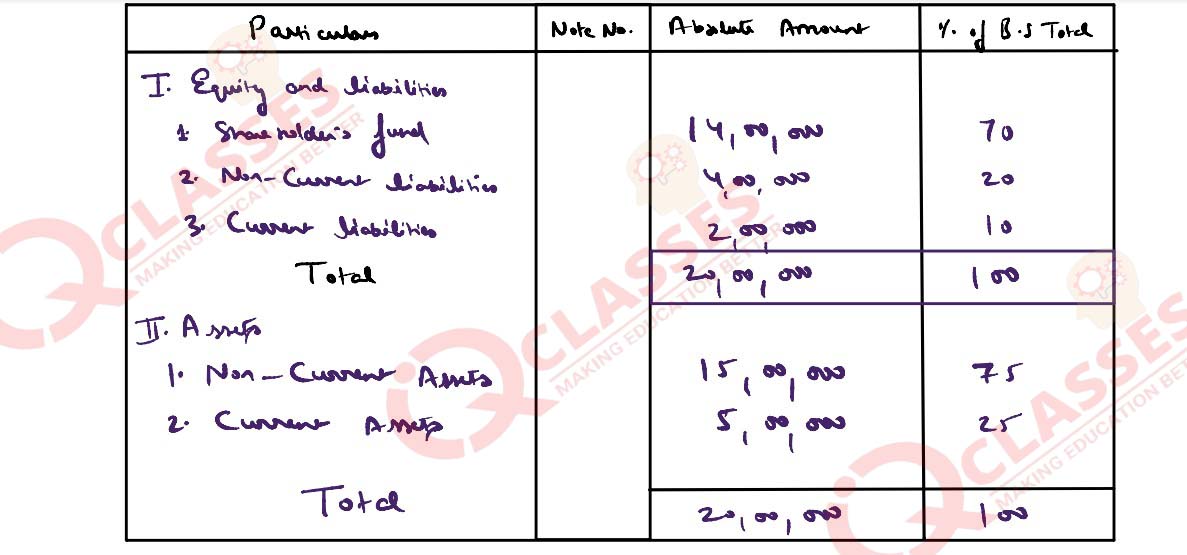 Particulars Note No. Absolute Amount % of B.S Total
I. Equity and liabilities
1. Shareholder's fund 14,00,000 70
2. Non-Current liabilities 4,00,000 20
3. Current liabilities 2,00,000 10
Total 20,00,000 100
II. Assets
1. Non-Current Assets 15,00,000 75
2. Current Assets 5,00,000 25
Total 20,00,000 100
IQ CLASSES
MAKING EDUCATION BETTER
IQ CLASSES
MAKING EDUCATION BETTER
IQ CLASSES
MAKING EDUCATION BET